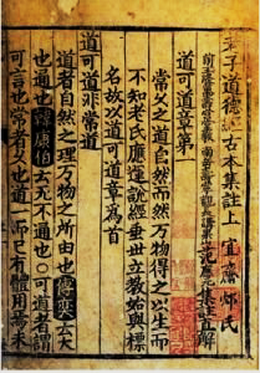 老子道德經古本集註上
范應元集註直解
道可道章第一
常久之道自然而然萬物得之以生而
不知老氏應運說經垂世立教始與標
名故以道可道章為首
道可道非常道
道者自然之理萬物之所由也云大
也通也韓康伯云无不通也○可道者謂
可言也常者久也道一而已有體用焉未